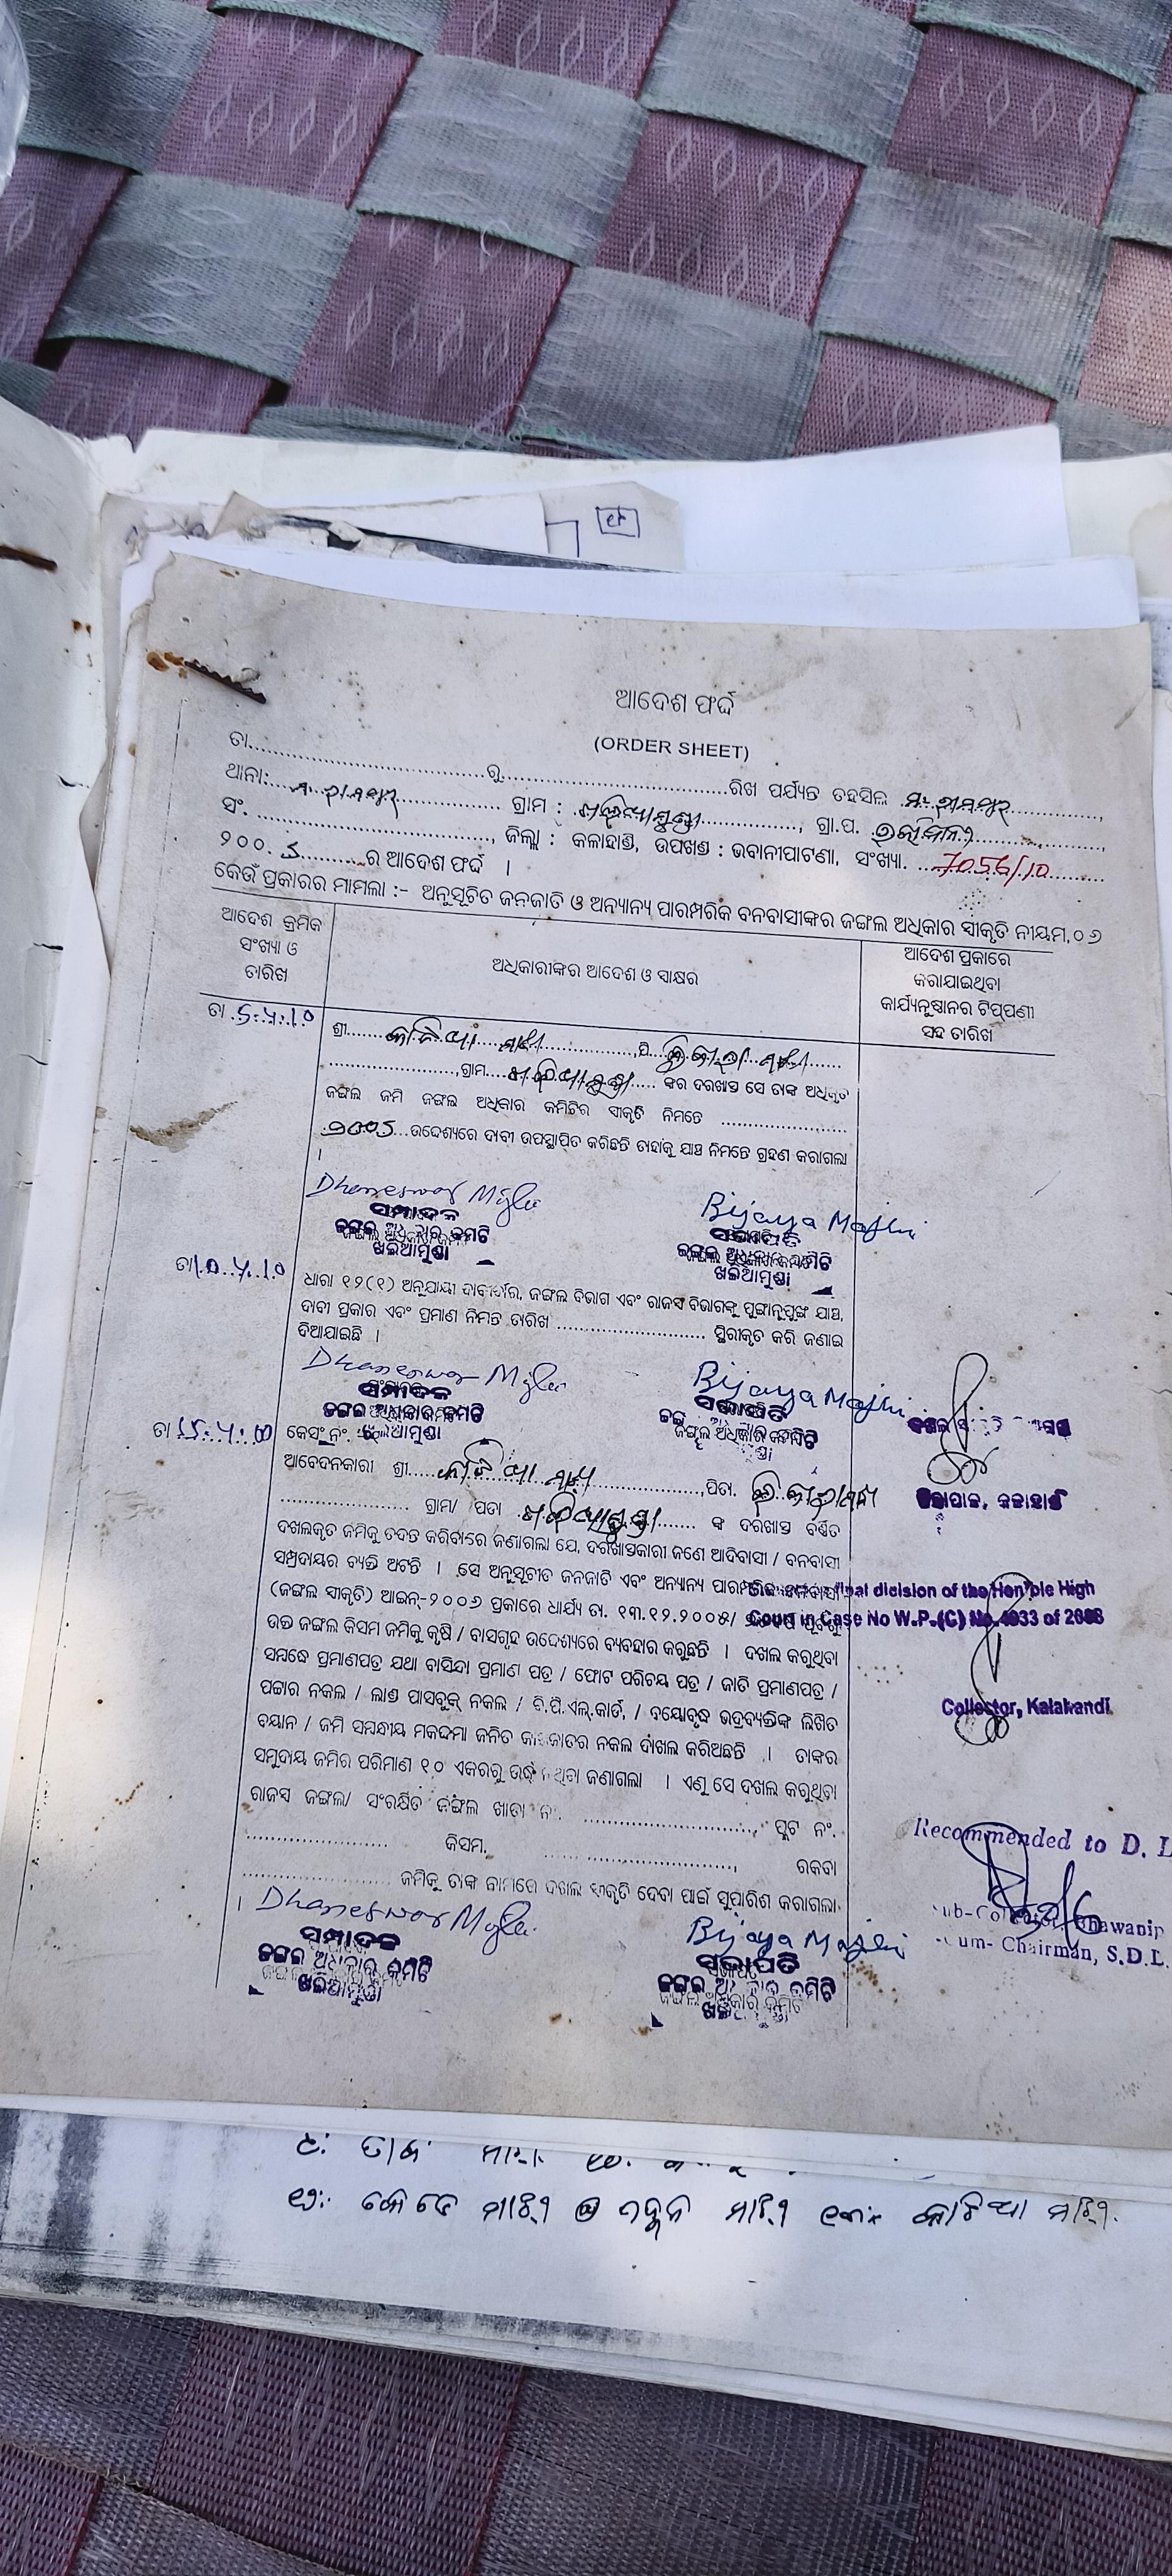 ଆଦେଶ ଫର୍ଦ୍ଦ
(ORDER SHEET)
ତା..............................ରୁ..............................ରିଖ ପର୍ଯ୍ୟନ୍ତ ତହସିଲ ମ. ରାମପୁର
ଥାନା: ମ. ରାମପୁର ଗ୍ରାମ : ଖଲିଆମୁଣ୍ଡା, ଗ୍ରା.ପ.
ସଂ. .............................., ଜିଲ୍ଲା : କଳାହାଣ୍ଡି, ଉପଖଣ୍ଡ : ଭବାନୀପାଟଣା, ସଂଖ୍ୟା. 7056/10
୨୦୦. ..........ର ଆଦେଶ ଫର୍ଦ୍ଦ ।
କେଉଁ ପ୍ରକାରର ମାମଲା :- ଅନୁସୂଚିତ ଜନଜାତି ଓ ଅନ୍ୟାନ୍ୟ ପାରମ୍ପରିକ ବନବାସୀଙ୍କର ଜଙ୍ଗଲ ଅଧିକାର ସୀକୃତି ନୀୟମ.୦୬
ଆଦେଶ କ୍ରମିକ
ସଂଖ୍ୟା ଓ
ତାରିଖ
ଅଧିକାରୀଙ୍କର ଆଦେଶ ଓ ସାକ୍ଷର
ଆଦେଶ ପ୍ରକାରେ
କରାଯାଇଥିବା
କାର୍ଯ୍ୟନୁଷ୍ଠାନର ଟିପ୍ପଣୀ
ସହ ତାରିଖ
ତା 5.4.10
ଶ୍ରୀ.... ମାଝୀ....,ପି.... ମାଝୀ
....................,ଗ୍ରାମ....ଖଲିଆମୁଣ୍ଡା.... ଙ୍କର ଦରଖାସ୍ତ ସେ ତାଙ୍କ ଅଧିକୃତ
ଜଙ୍ଗଲ ଜମି ଜଙ୍ଗଲ ଅଧିକାର କମିଟିର ସୀକୃତି ନିମନ୍ତେ ....................
..........ଉଦ୍ଦେଶ୍ୟରେ ଦାବୀ ଉପସ୍ଥାପିତ କରିଛନ୍ତି ତାହାକୁ ଯାଞ୍ଚ ନିମନ୍ତେ ଗ୍ରହଣ କରାଗଲା
।
Dhaneswar Majhi Bijaya Majhi
ସମ୍ପାଦକ ସଭାପତି
ଜଙ୍ଗଲ ଅଧିକାର କମିଟି ଜଙ୍ଗଲ ଅଧିକାର କମିଟି
ଖଲିଆମୁଣ୍ଡା ଖଲିଆମୁଣ୍ଡା
ତା 10.4.10
ଧାରା ୧୨(୧) ଅନୁଯାୟୀ ଦାବୀଦାର, ଜଙ୍ଗଲ ବିଭାଗ ଏବଂ ରାଜସ ବିଭାଗଙ୍କୁ ପୁଙ୍ଖାନୁପୁଙ୍ଖ ଯାଞ୍ଚ,
ଦାବୀ ପ୍ରକାର ଏବଂ ପ୍ରମାଣ ନିମନ୍ତ ତାରିଖ .............................. ସ୍ଥିରୀକୃତ କରି ଜଣାଇ
ଦିଆଯାଇଛି ।
Dhaneswar Majhi Bijaya Majhi
ସମ୍ପାଦକ ସଭାପତି
ଜଙ୍ଗଲ ଅଧିକାର କମିଟି ଜଙ୍ଗଲ ଅଧିକାର କମିଟି
ଖଲିଆମୁଣ୍ଡା
ତା 15.4.10
କେସ୍ ନଂ.
ଆବେଦନକାରୀ ଶ୍ରୀ.... ମାଝୀ....,ପିତା. ମାଝୀ
.................... ଗ୍ରାମ/ ପଡା ଖଲିଆମୁଣ୍ଡା........ ଙ୍କ ଦରଖାସ୍ତ ବର୍ଣ୍ଣିତ
ଦଖଲକୃତ ଜମିକୁ ତଦନ୍ତ କରିବାରେ ଜଣାଗଲା ଯେ, ଦରଖାସ୍ତକାରୀ ଜଣେ ଆଦିବାସୀ / ବନବାସୀ
ସମ୍ପ୍ରଦାୟର ବ୍ୟକ୍ତି ଅଟନ୍ତି । ସେ ଅନୁସୂଚୀତ ଜନଜାତି ଏବଂ ଅନ୍ୟାନ୍ୟ ପାରମ୍ପରିକ ବନବାସୀ
(ଜଙ୍ଗଲ ସୀକୃତି) ଆଇନ-୨୦୦୬ ପ୍ରକାରେ ଧାର୍ଯ୍ୟ ତା. ୧୩.୧୨.୨୦୦୫/
ଉକ୍ତ ଜଙ୍ଗଲ କିସମ ଜମିକୁ କୃଷି / ବାସଗୃହ ଉଦ୍ଦେଶ୍ୟରେ ବ୍ୟବହାର କରୁଛନ୍ତି । ଦଖଲ କରୁଥିବା
ସମ୍ବନ୍ଧେ ପ୍ରମାଣପତ୍ର ଯଥା ବାସିନ୍ଦା ପ୍ରମାଣ ପତ୍ର / ଫୋଟ ପରିଚୟ ପତ୍ର / ଜାତି ପ୍ରମାଣପତ୍ର /
ପଟ୍ଟାର ନକଲ / ଲାଣ୍ଡ ପାସବୁକ୍ ନକଲ / ବି.ପି.ଏଲ୍.କାର୍ଡ, / ବୟୋବୃଦ୍ଧ ଭଦ୍ରବ୍ୟକ୍ତିଙ୍କ ଲିଖିତ
ବୟାନ / ଜମି ସମ୍ବନ୍ଧୀୟ ମକଦ୍ଦମା ଜନିତ କାଗଜାତର ନକଲ ଦାଖଲ କରିଅଛନ୍ତି । ତାଙ୍କର
ସମୁଦାୟ ଜମିର ପରିମାଣ ୧୦ ଏକରରୁ ଉର୍ଦ୍ଧ୍ବ ନଥିବା ଜଣାଗଲା । ଏଣୁ ସେ ଦଖଲ କରୁଥିବା
ରାଜସ ଜଙ୍ଗଲ/ ସଂରକ୍ଷିତ ଜଙ୍ଗଲ ଖାତା ନଂ. .............................., ପ୍ଲଟ ନଂ.
.................... କିସମ. .............................. ରକବା
.............................. ଜମିକୁ ତାଙ୍କ ନାମରେ ଦଖଲ ସୀକୃତି ଦେବା ପାଇଁ ସୁପାରିଶ କରାଗଲା
।
final dicision of the Hon'ble High
Court in Case No W.P.(C) No.4933 of 2008
Collector, Kalahandi
Recommended to D. L
Sub-Collector, Bhawanip
-Cum- Chairman, S.D.L.
Dhaneswar Majhi Bijaya Majhi
ସମ୍ପାଦକ ସଭାପତି
ଜଙ୍ଗଲ ଅଧିକାର କମିଟି ଜଙ୍ଗଲ ଅଧିକାର କମିଟି
ଖଲିଆମୁଣ୍ଡା